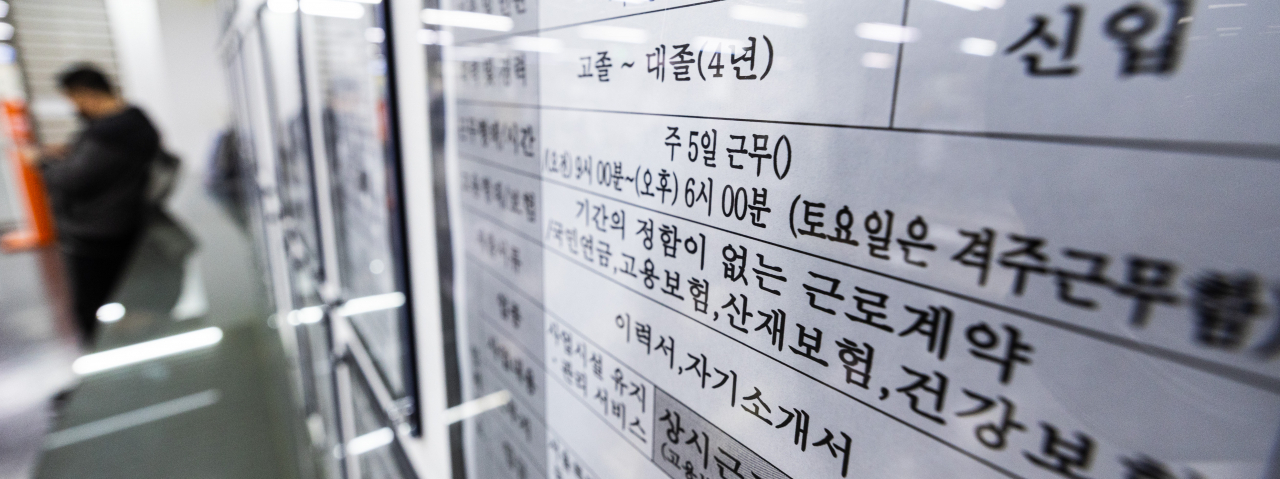 고졸 ~ 대졸(4년)
신입
근무형태/시간
주 5일 근무()
(오전) 9시 00분~(오후) 6시 00분 (토요일은 격주근무함)
고용형태/보험
기간의 정함이 없는 근로계약
/국민연금,고용보험,산재보험,건강보
이력서,자기소개서
업종
사업시설 유지
관리 서비스
상시근
(고용